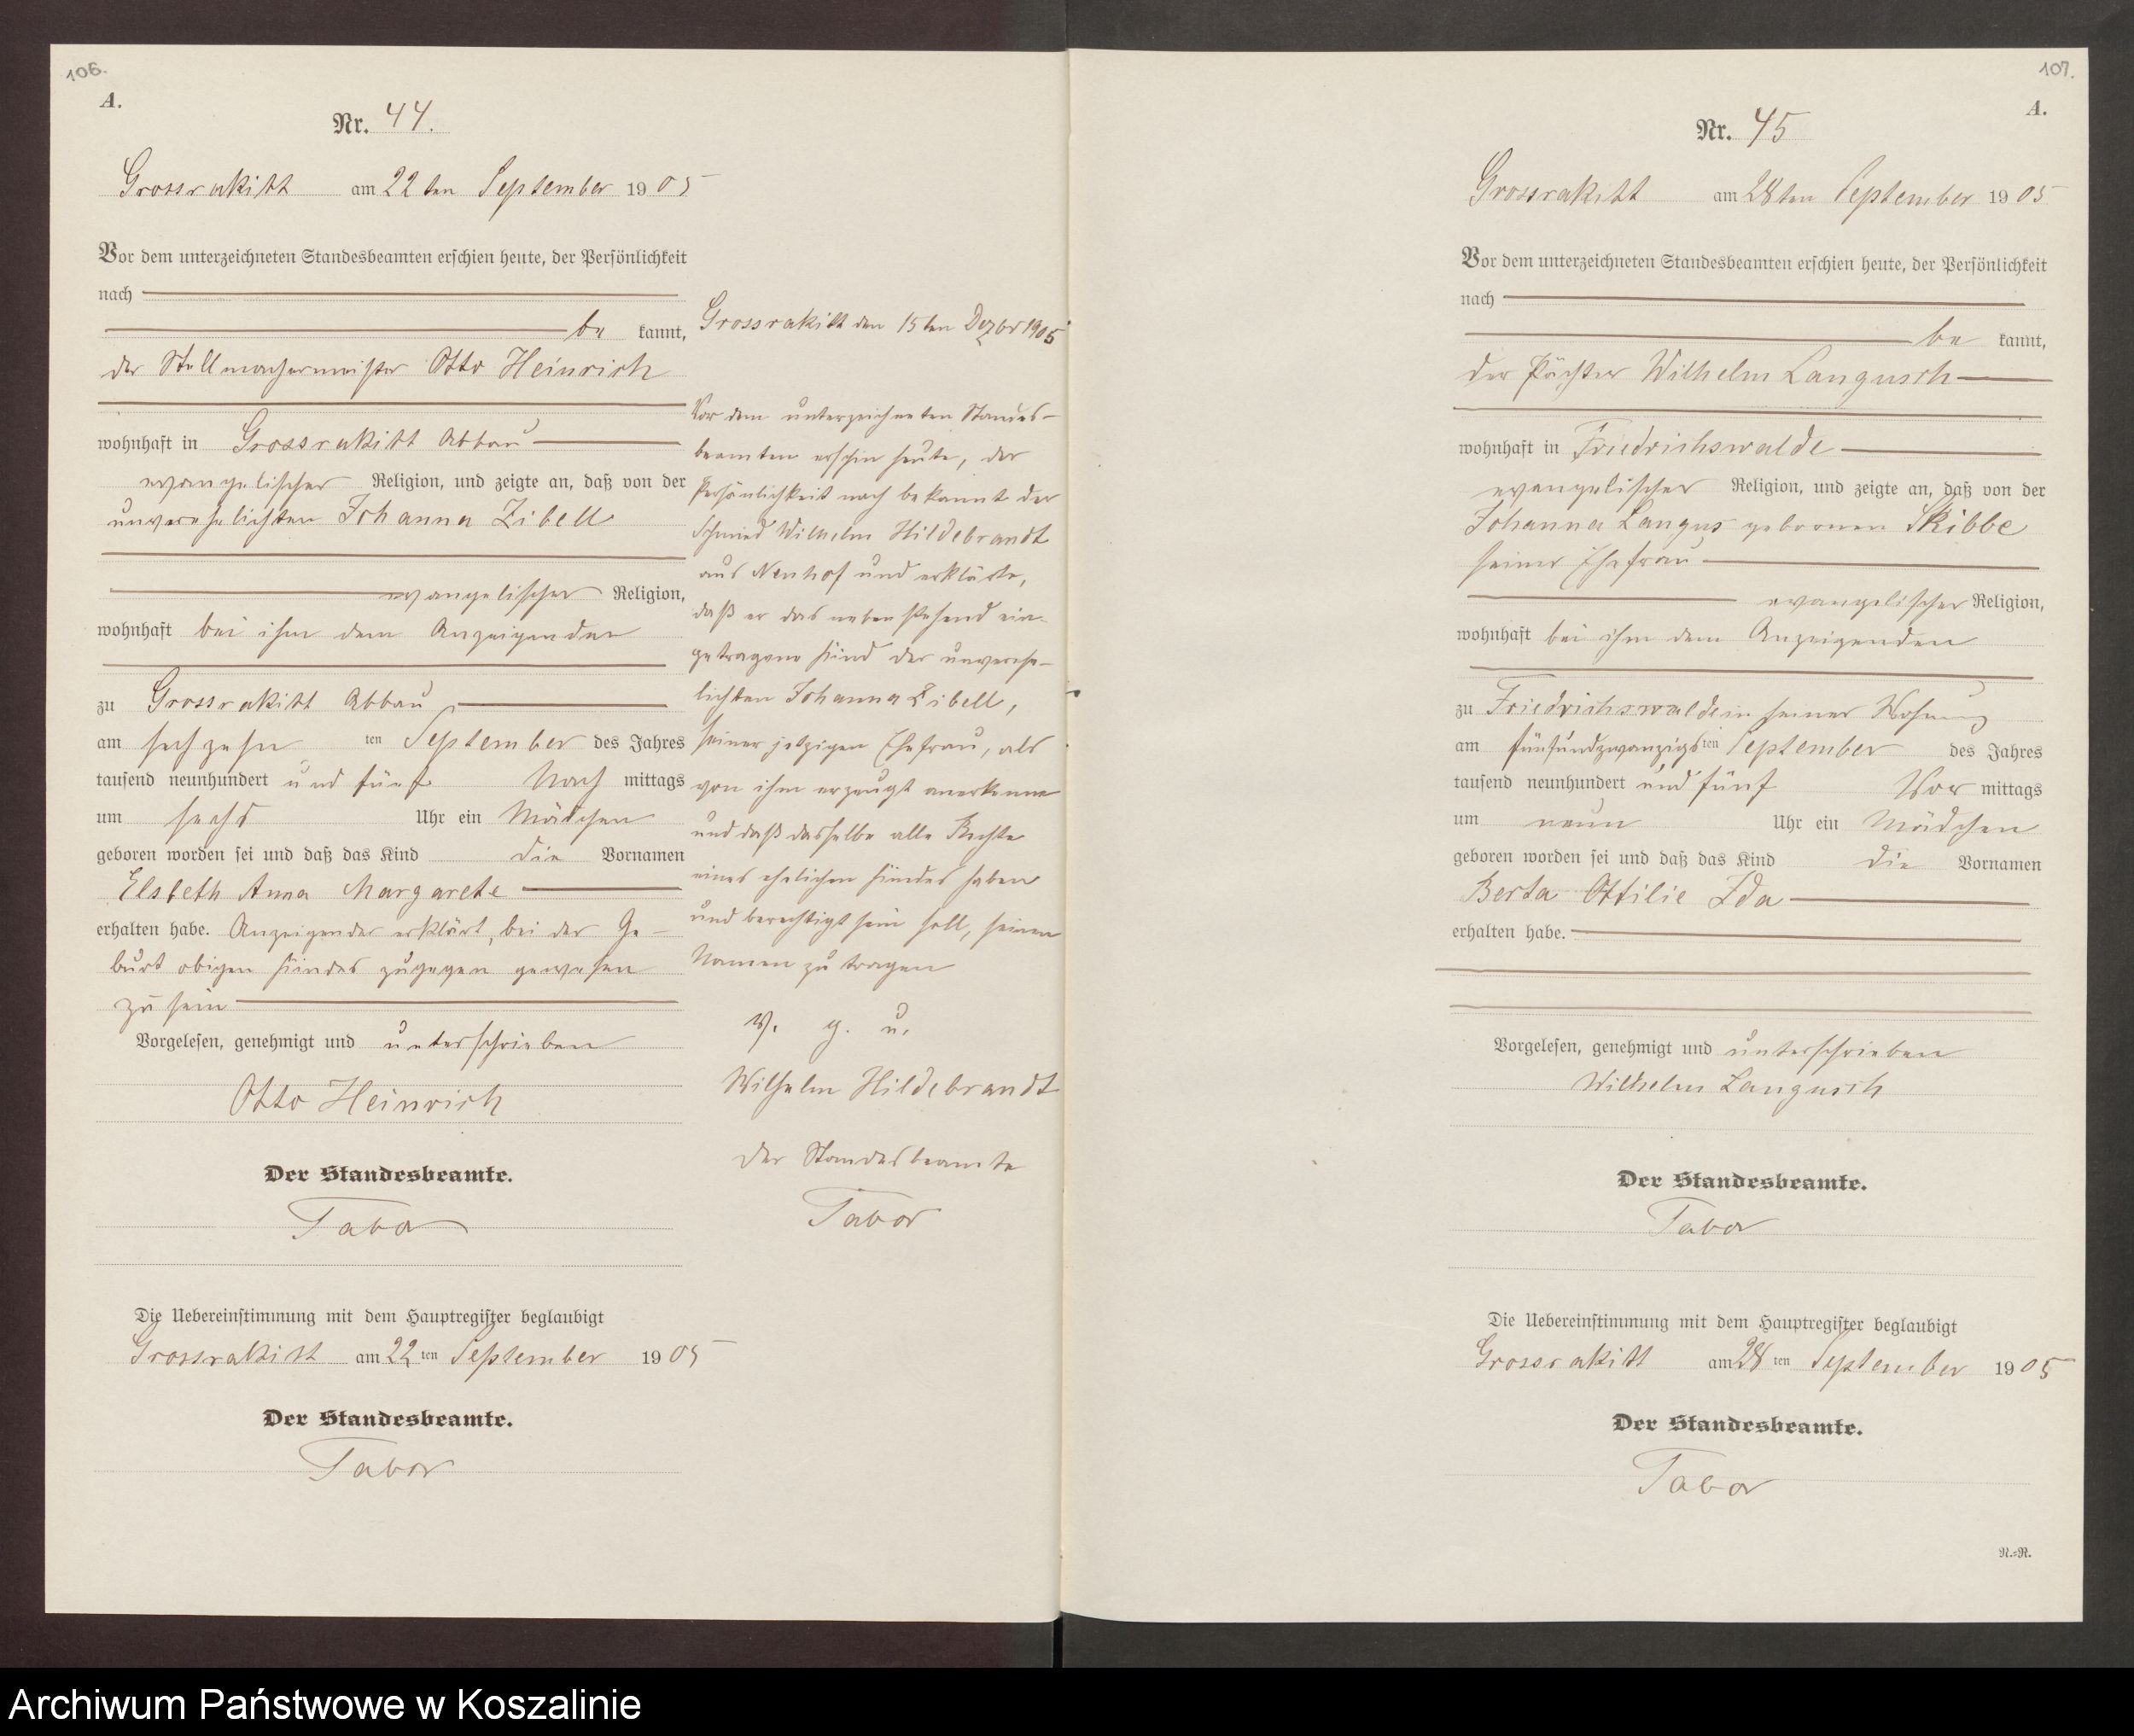 106.
A.
Nr. 44.
Grossrakitt am 22ten September 1905
Vor dem unterzeichneten Standesbeamten erschien heute, der Persönlichkeit
nach
be kannt,
der Stellmachermeister Otto Heinrich
wohnhaft in Grossrakitt Abbau
evangelischer Religion, und zeigte an, daß von der
unverehelichten Johanna Zibell
evangelischer Religion,
wohnhaft bei ihm dem Anzeigenden
zu Grossrakitt Abbau
am sechzehn ten September des Jahres
tausend neunhundert und fünf Nach mittags
um sechs Uhr ein Mädchen
geboren worden sei und daß das Kind die Vornamen
Elsbeth Anna Margarete
erhalten habe. Anzeigender erklärt, bei der Ge-
burt obigen Kindes zugegen gewesen
zu sein
Vorgelesen, genehmigt und unterschrieben
Otto Heinrich
Der Standesbeamte.
Tabor
Die Uebereinstimmung mit dem Hauptregister beglaubigt
Grossrakitt am 22ten September 1905
Der Standesbeamte.
Tabor
Grossrakitt den 15ten Dezbr 1905
Vor dem unterzeichneten Standes-
beamten erschin heute, der
Persönlichkeit nach bekannt der
Schmied Wilhelm Hildebrandt
aus Neuhof und erklärte,
daß er das nebenstehend ein-
getragene Kind der unverehe-
lichten Johanna Zibell,
seiner jetzigen Ehefrau, als
von ihm erzeugt anerkenne
und daß dasselbe alle Rechte
eines ehelichen Kindes haben
und berechtigt sein soll, seinen
Namen zu tragen
v. g. u.
Wilhelm Hildebrandt
Der Standesbeamte
Tabor
107.
A.
Nr. 45
Grossrakitt am 28ten September 1905
Vor dem unterzeichneten Standesbeamten erschien heute, der Persönlichkeit
nach
be kannt,
der Pächter Wilhelm Langusch
wohnhaft in Friedrichswalde
evangelischer Religion, und zeigte an, daß von der
Johanna Langus geborenen Skibbe
seiner Ehefrau
evangelischer Religion,
wohnhaft bei ihm dem Anzeigenden
zu Friedrichswalde in seiner Wohnung
am fünfundzwanzigsten September des Jahres
tausend neunhundert und fünf Vor mittags
um neun Uhr ein Mädchen
geboren worden sei und daß das Kind die Vornamen
Berta Ottilie Ida
erhalten habe.
Vorgelesen, genehmigt und unterschrieben
Wilhelm Langusch
Der Standesbeamte.
Tabor
Die Uebereinstimmung mit dem Hauptregister beglaubigt
Grossrakitt am 28ten September 1905
Der Standesbeamte.
Tabor
R.=R.
Archiwum Państwowe w Koszalinie